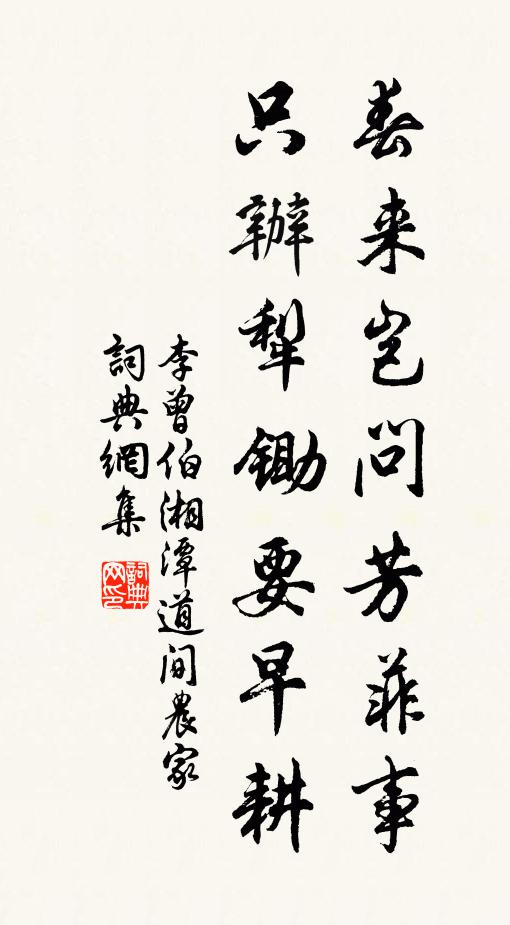 春来岂问芳菲事
只辦犁鋤要早耕
李曾伯湘潭道間農家
詞典網集
詞典网印